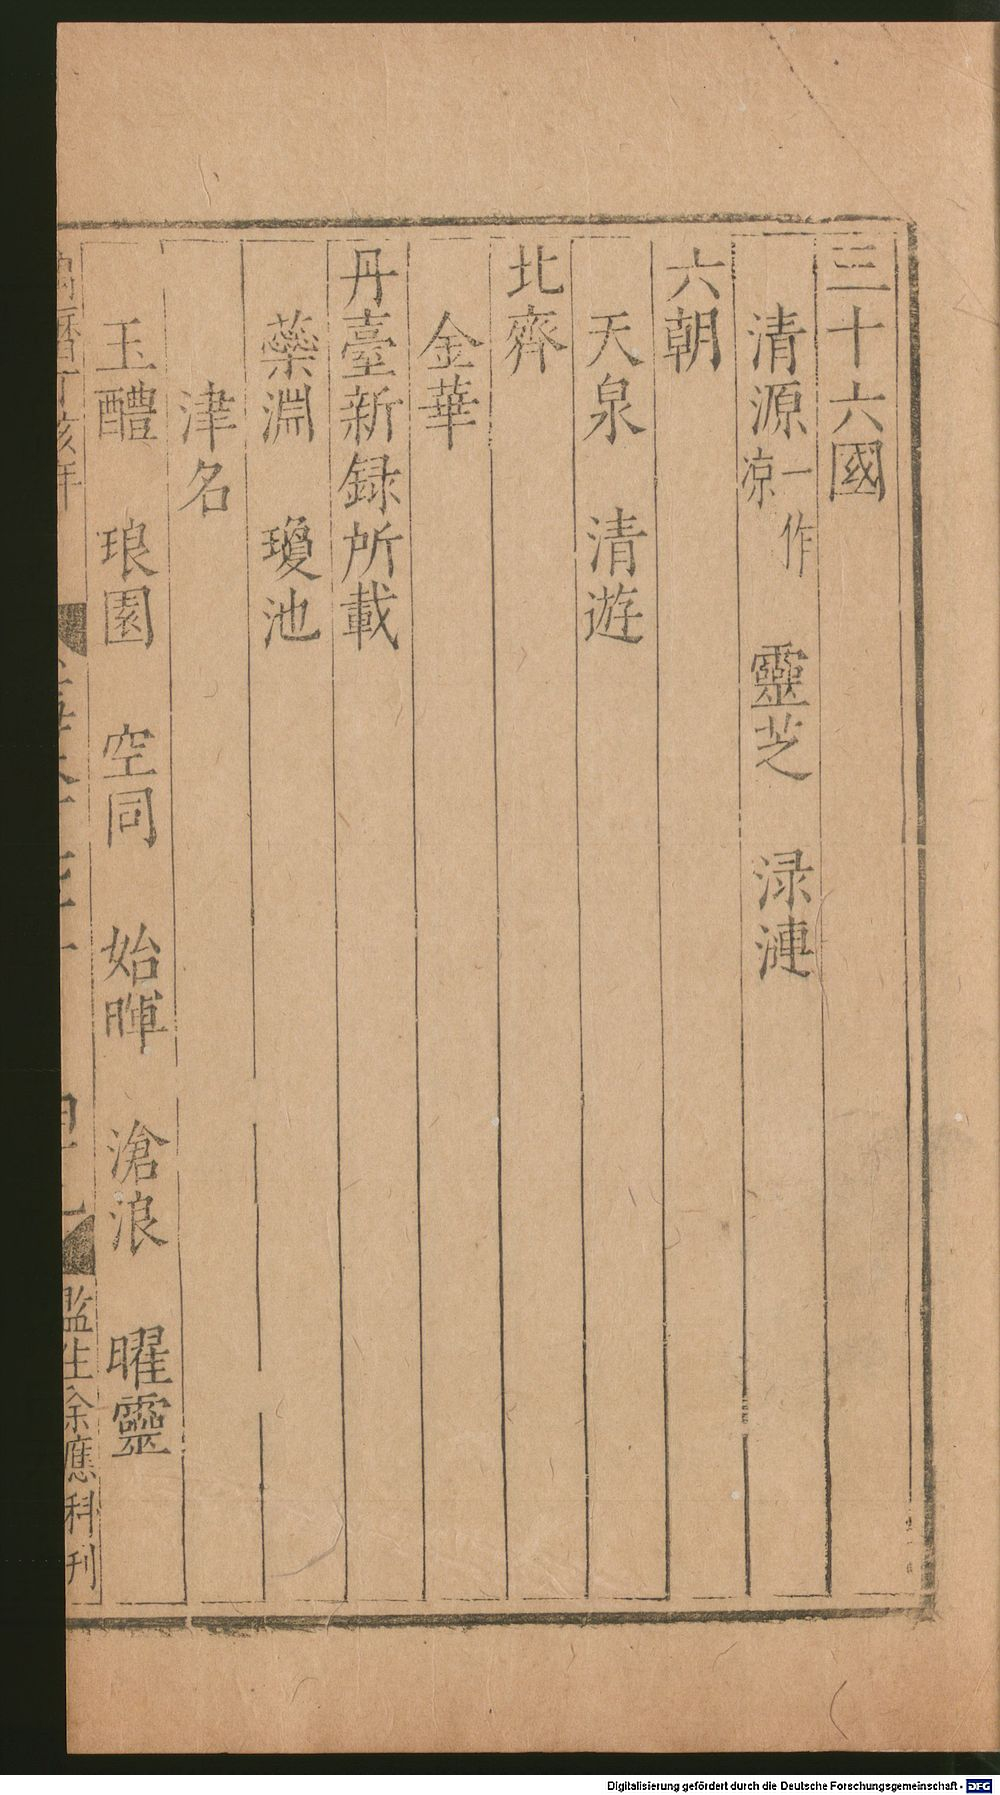 三十六國
清源一作凉 靈芝 渌漣
六朝
天泉 清遊
北齊
金華
丹臺新録所載
蘂淵 瓊池
津名
玉醴 琅園 空同 始暉 滄浪 曜靈
監生余應科刊
Digitalisierung gefördert durch die Deutsche Forschungsgemeinschaft - DFG